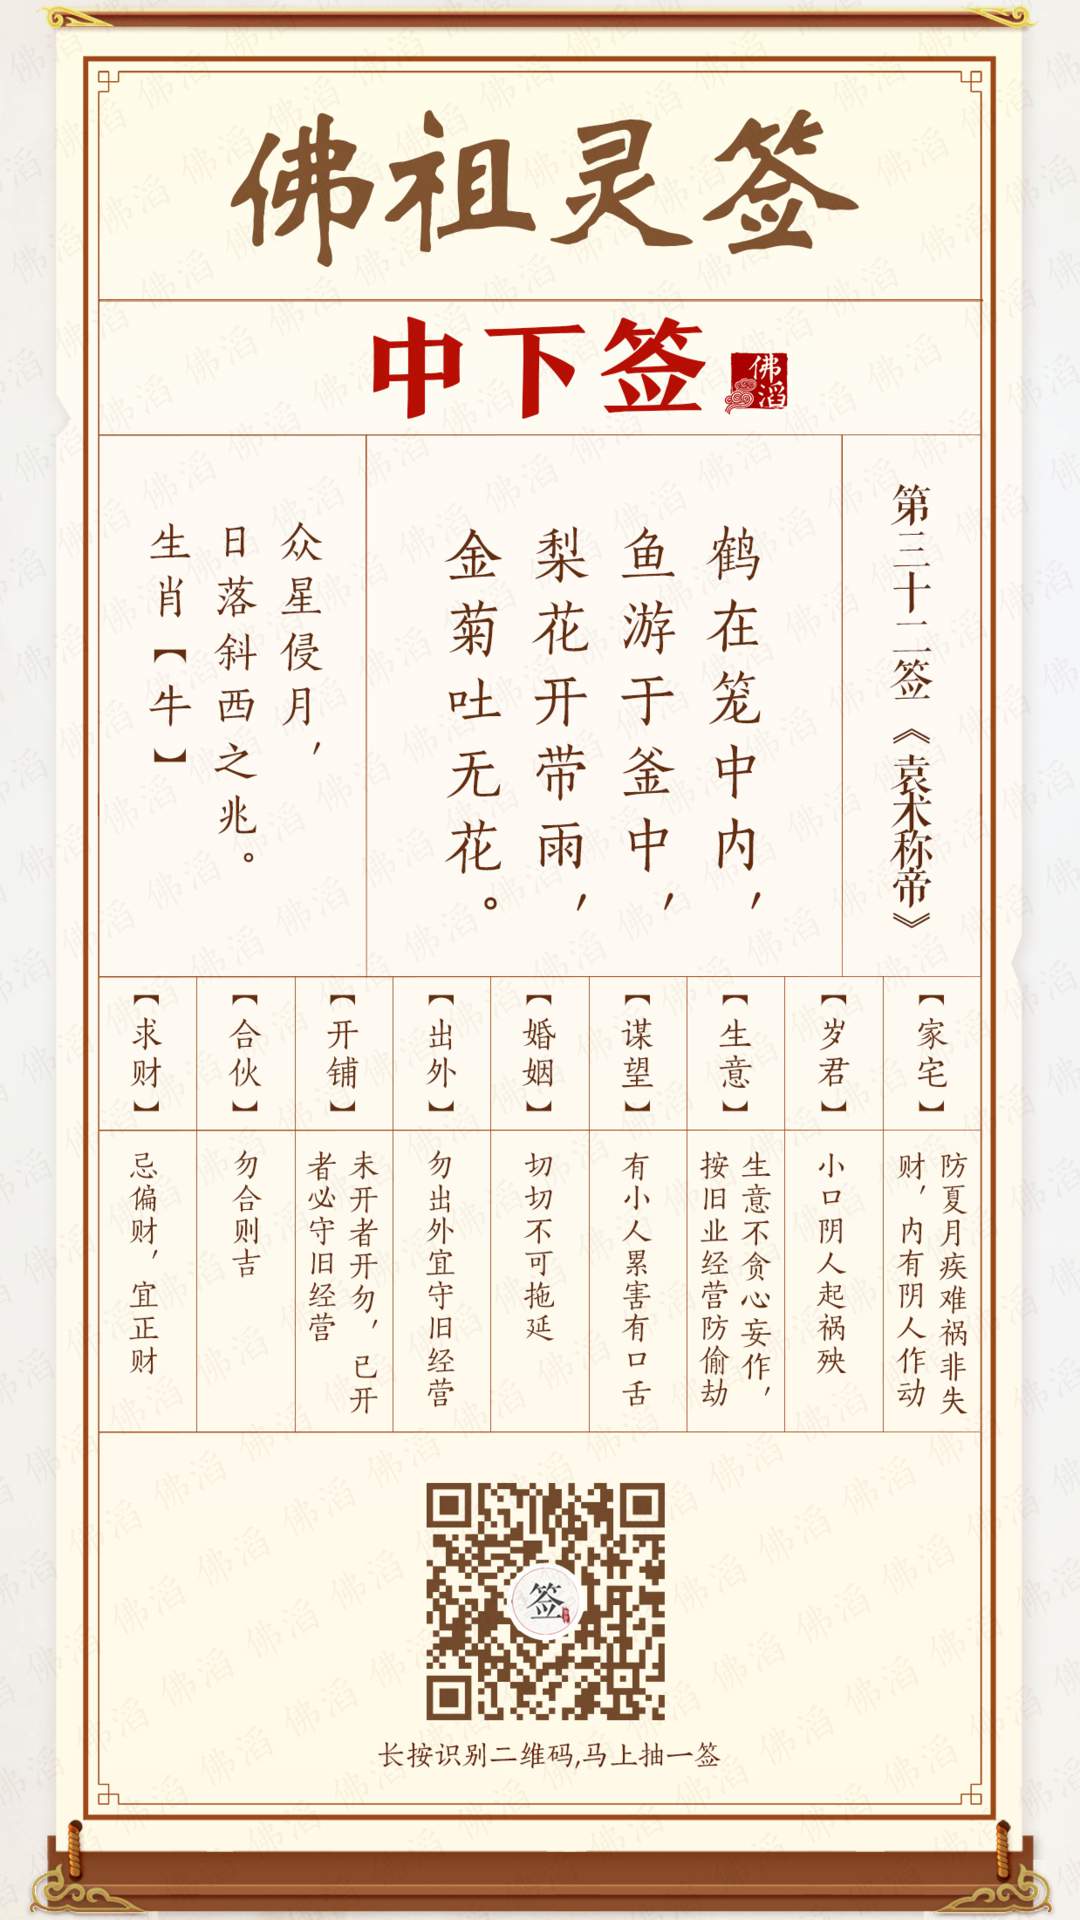 佛祖灵签
中下签
佛滔
第三十二签《袁术称帝》
鹤在笼中内，
鱼游于釜中，
梨花开带雨，
金菊吐无花。
众星侵月，
日落斜西之兆。
生肖【牛】
【家宅】
防夏月疾难祸非失
财，内有阴人作动
【岁君】
小口阴人起祸殃
【生意】
生意不贪心妄作，
按旧业经营防偷劫
【谋望】
有小人累害有口舌
【婚姻】
切切不可拖延
【出外】
勿出外宜守旧经营
【开铺】
未开者开勿，已开
者必守旧经营
【合伙】
勿合则吉
【求财】
忌偏财，宜正财
签
长按识别二维码,马上抽一签